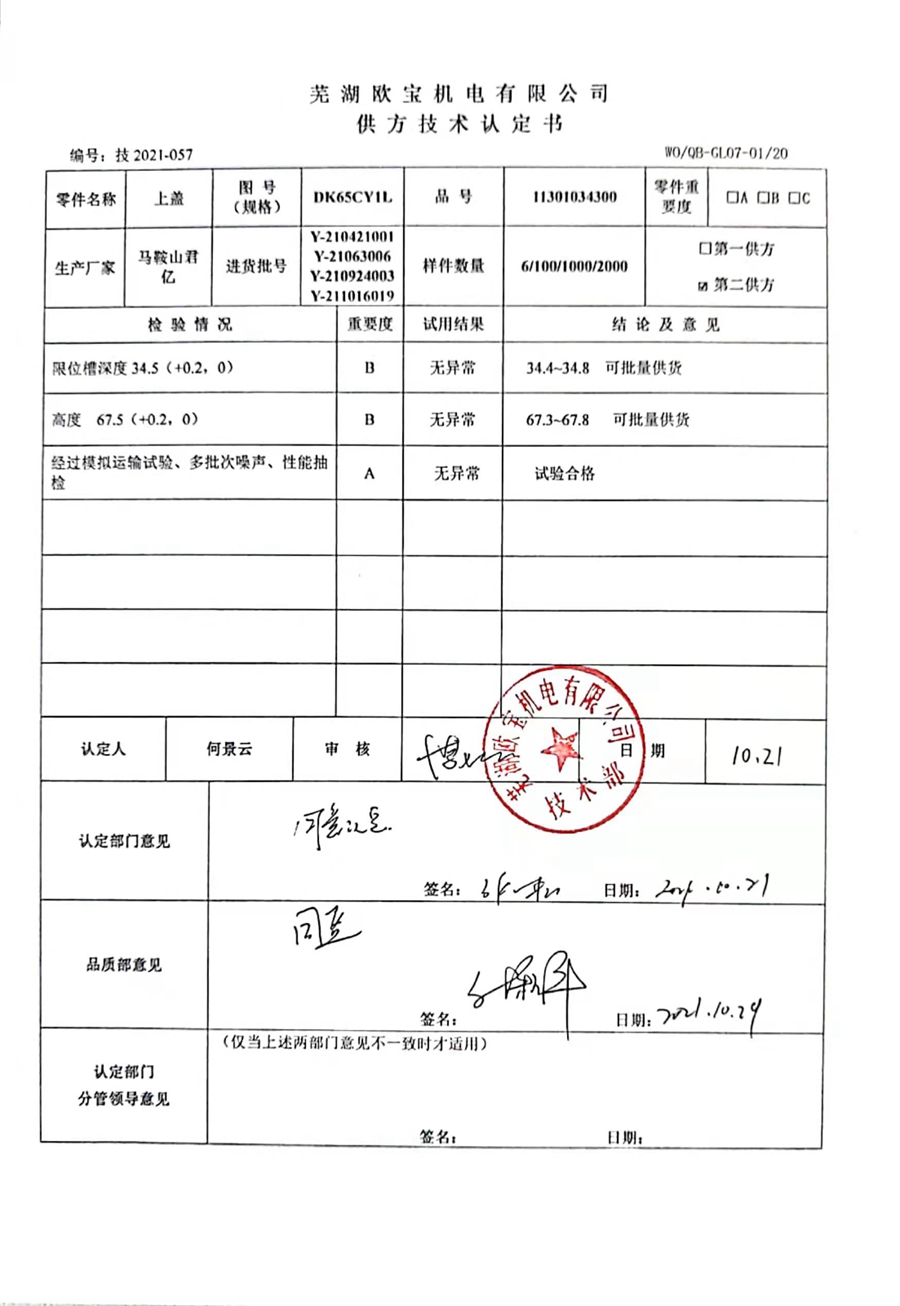 芜湖欧宝机电有限公司
供方技术认定书
编号：技 2021-057
WO/QB-GL07-01/20
零件名称 上盖 图 号（规格） DK65CY1L 品 号 11301034300 零件重要度 □A □B □C
生产厂家 马鞍山君亿 进货批号
Y-210421001
Y-21063006
Y-210924003
Y-211016019
样件数量 6/100/1000/2000
□第一供方
☑ 第二供方
检 验 情 况 重要度 试用结果 结 论 及 意 见
限位槽深度 34.5（+0.2，0） B 无异常 34.4~34.8 可批量供货
高度 67.5（+0.2，0） B 无异常 67.3~67.8 可批量供货
经过模拟运输试验、多批次噪声、性能抽检 A 无异常 试验合格
认定人 何景云 审 核 日 期 10.21
芜湖欧宝机电有限公司
技术部
认定部门意见
签名： 日期：2021.10.21
品质部意见
同意
签名： 日期：2021.10.29
认定部门
分管领导意见
（仅当上述两部门意见不一致时才适用）
签名： 日期：